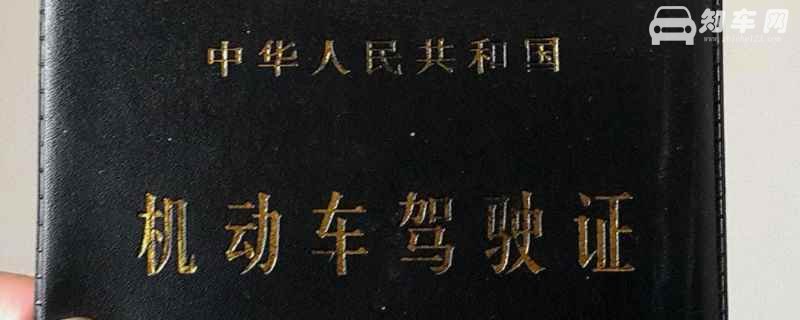 知车网
中华人民共和国
机动车驾驶证